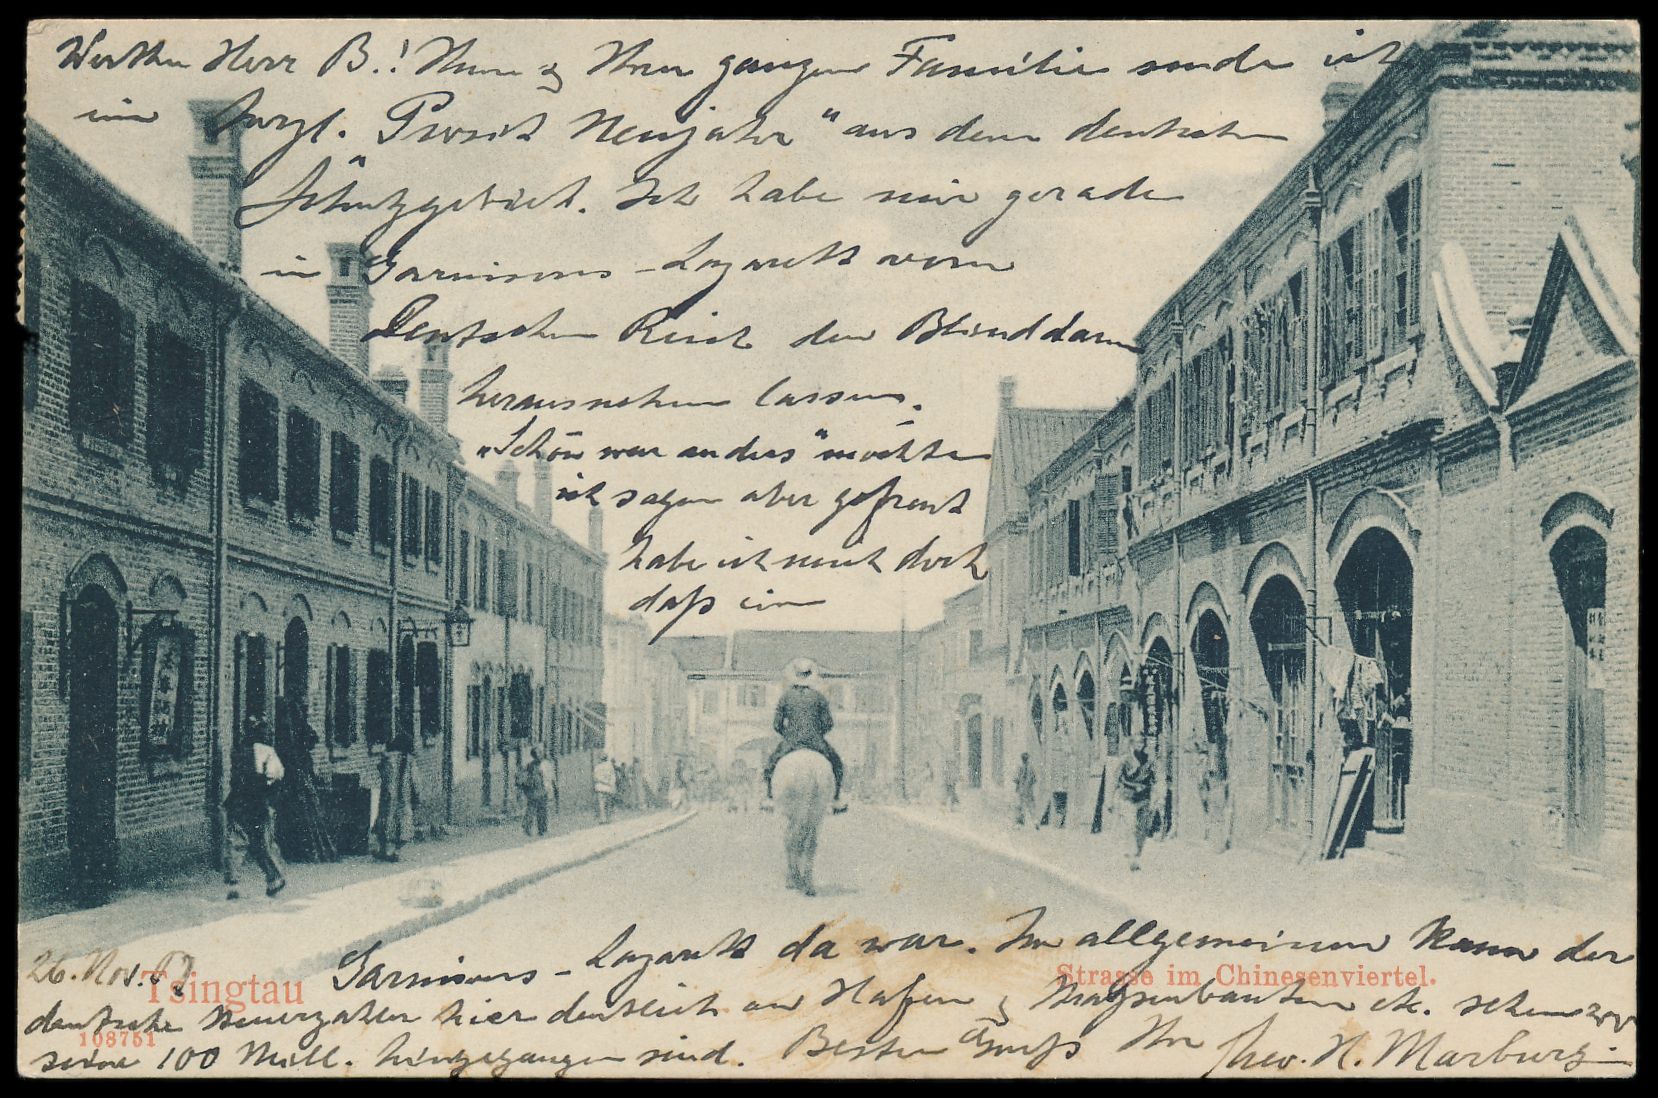 Werther Herr B.! Ihnen & Ihrer ganzen Familie sende ich
ein herzl. „Prosit Neujahr" aus dem deutschen
Schutzgebiet. Ich habe mir gerade
im Garnisons-Lazarett vom
Deutschen Reich den Blinddarm
herausnehmen lassen.
„Schön war anders" möchte
ich sagen aber gefreut
habe ich mich doch
daß ein
Garnisons-Lazarett da war. Im allgemeinen kann der
26. Nov. 07
Tsingtau
Strasse im Chinesenviertel.
deutsche Steuerzahler hier deutlich an Hafen & Straßenbauten etc. sehen wo
108751
seine 100 Mill. hingegangen sind. Besten Gruß Ihr Theo. H. Marburg.